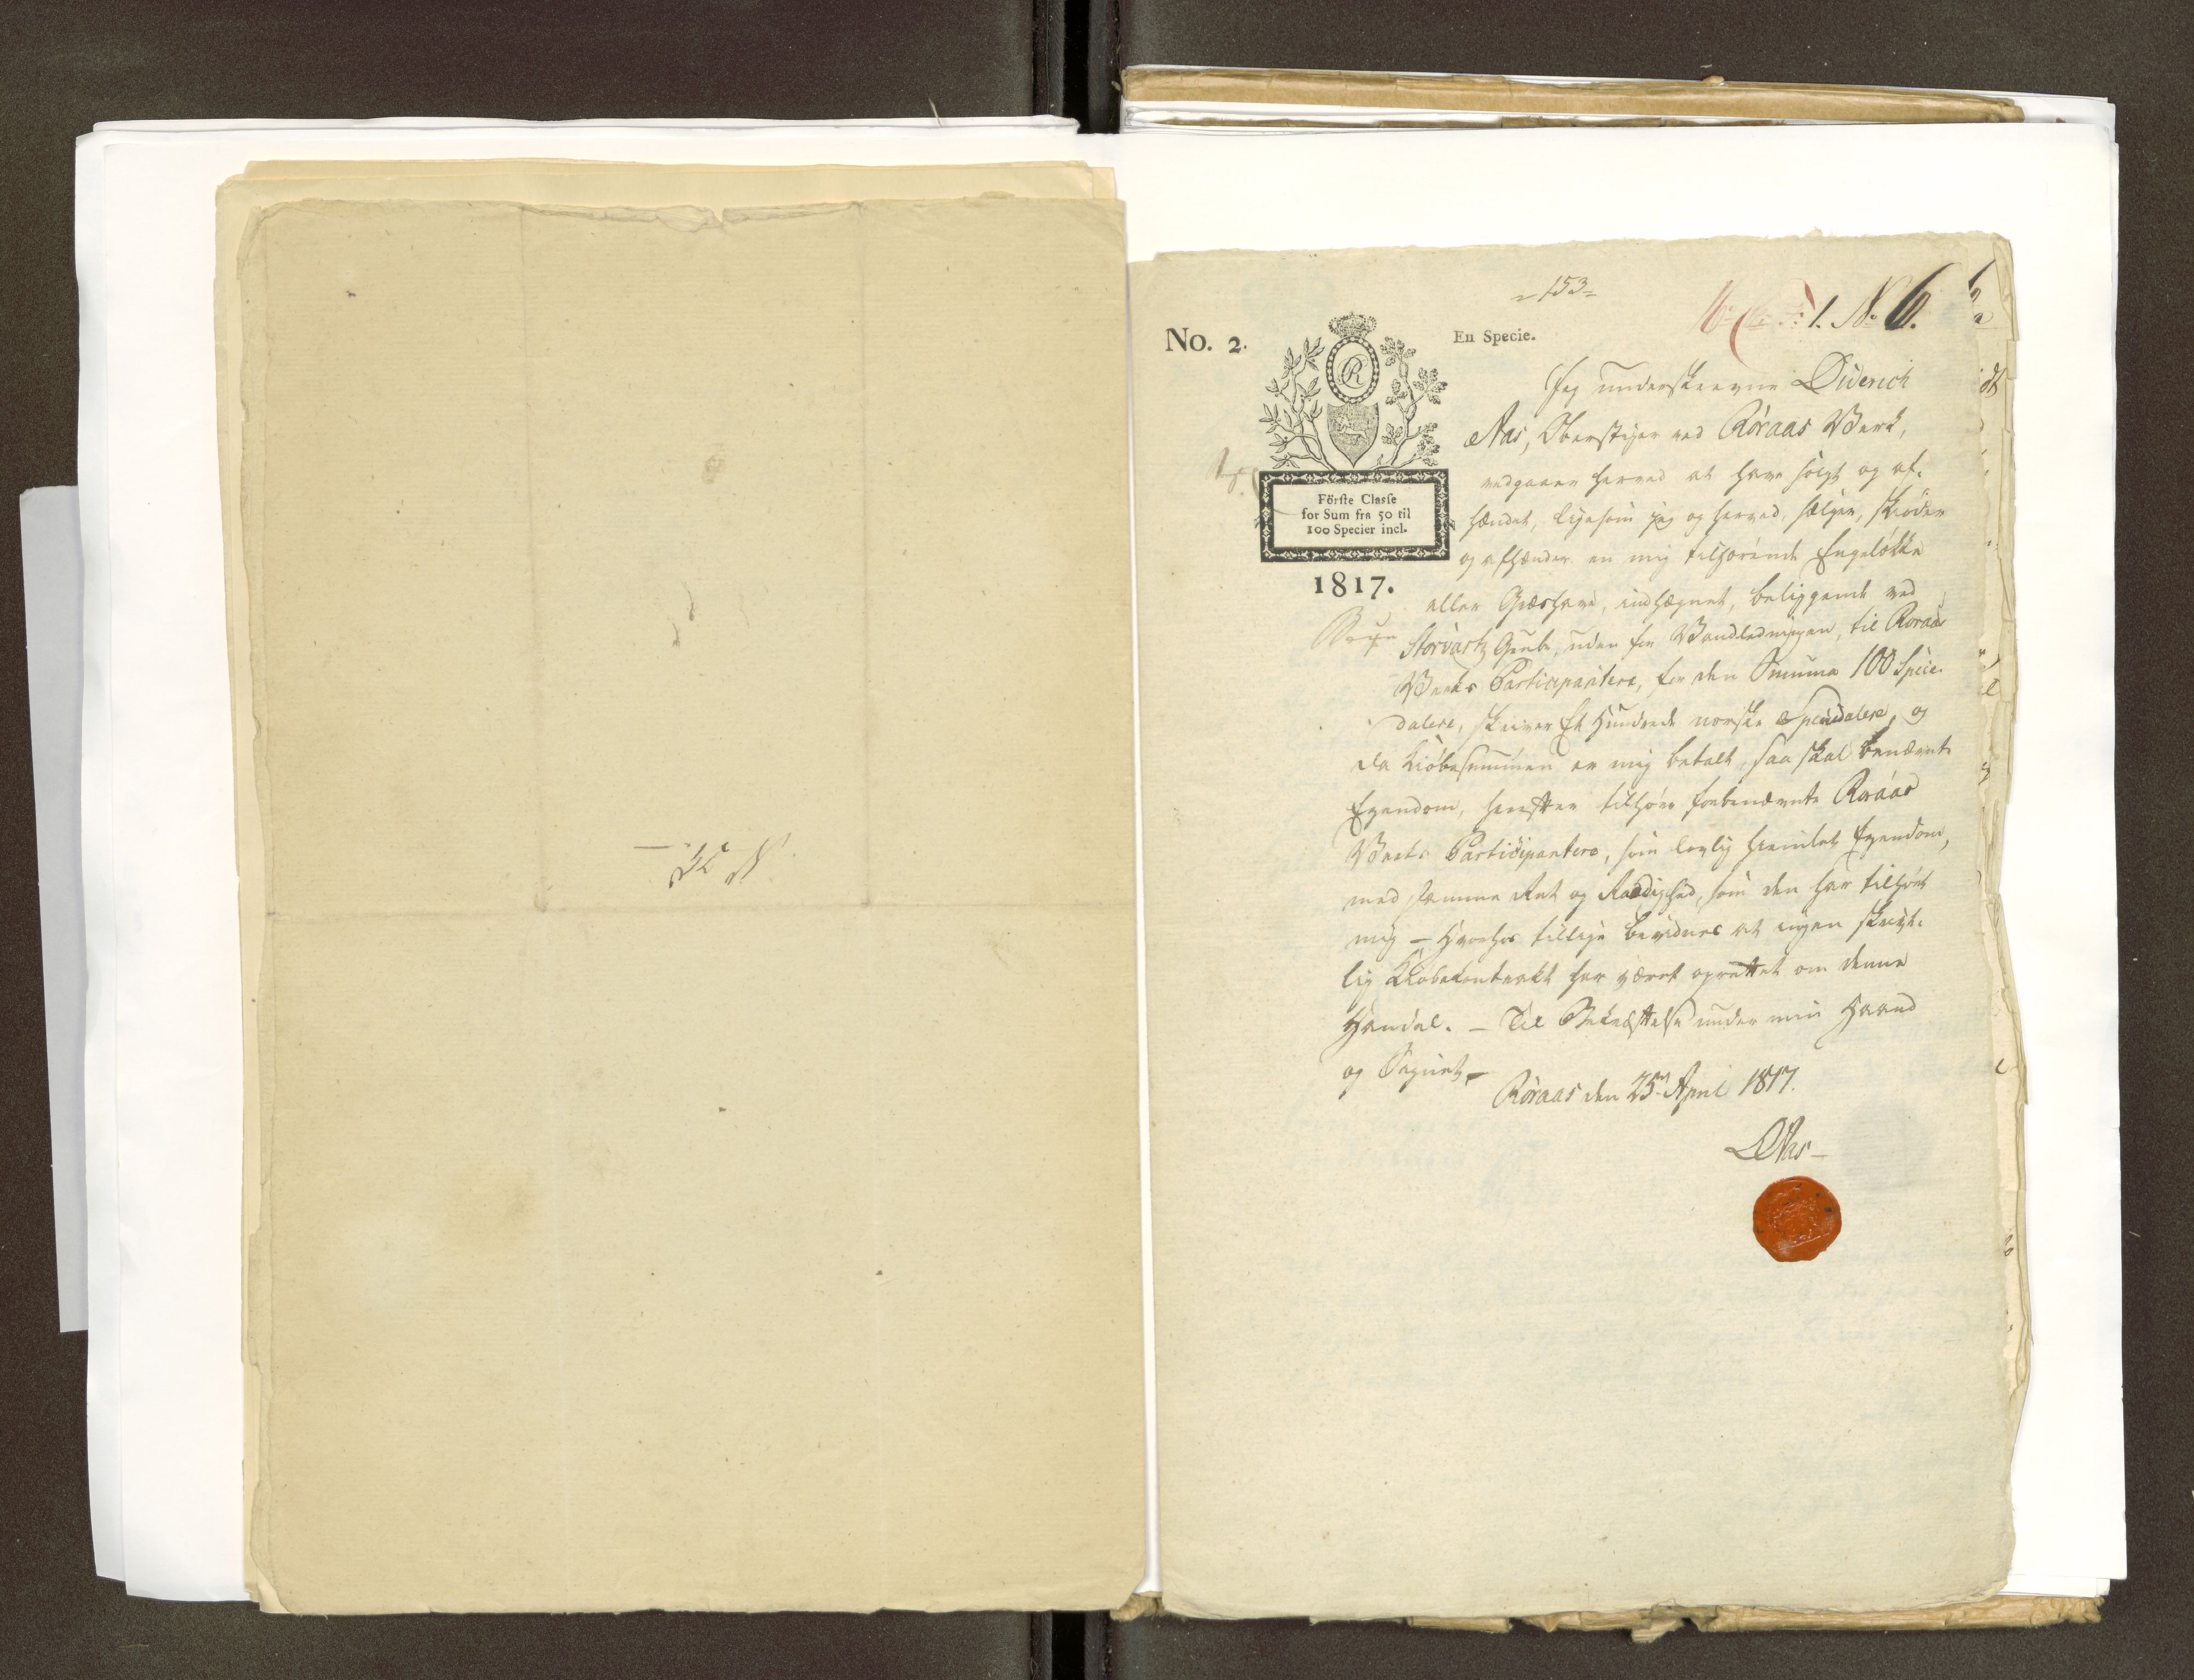 No. 2.
=153=
En Specie.
1. No 6.
Förste Classe
for Sum fra 50 til
100 Specier incl.
1817.
Jeg underskrevne Diderich
Aas, Oberstiger ved Röraas Værk,
vedgaaer herved at have solgt og af-
hændet, ligesom jeg og herved, sælger, skiöder
og afhænder en mig tilhörende Engelökke
eller Græshave, indhægnet, beliggende ved
Storvartz Grube, uden for Vandledningen, til Röraas
Værks Participantere, for den Summa 100 Specie-
dalere, skriver Et Hundrede norske Speciedalere, og
da Kiöbesummen er mig betalt, saa skal benævnte
Eyendom, herefter tilhöre forbenævnte Röraas
Værks Participantere, som lovlig hiemlet Eyendom,
med samme Ret og Rædighed, som den har tilhört
mig – Hvorhos tillige bevidnes at ingen skrivt-
lig Kiöbekontrakt har været oprettet om denne
Handel. – Til Bekræftelse under min Haand
og Signet, –
Röraas den 25de April 1817.
DAas –